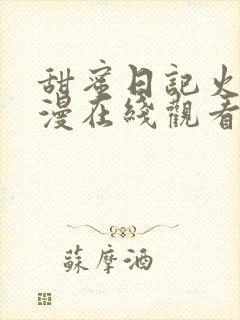 甜蜜日記火
漫在綫觀看
蘇摩酒